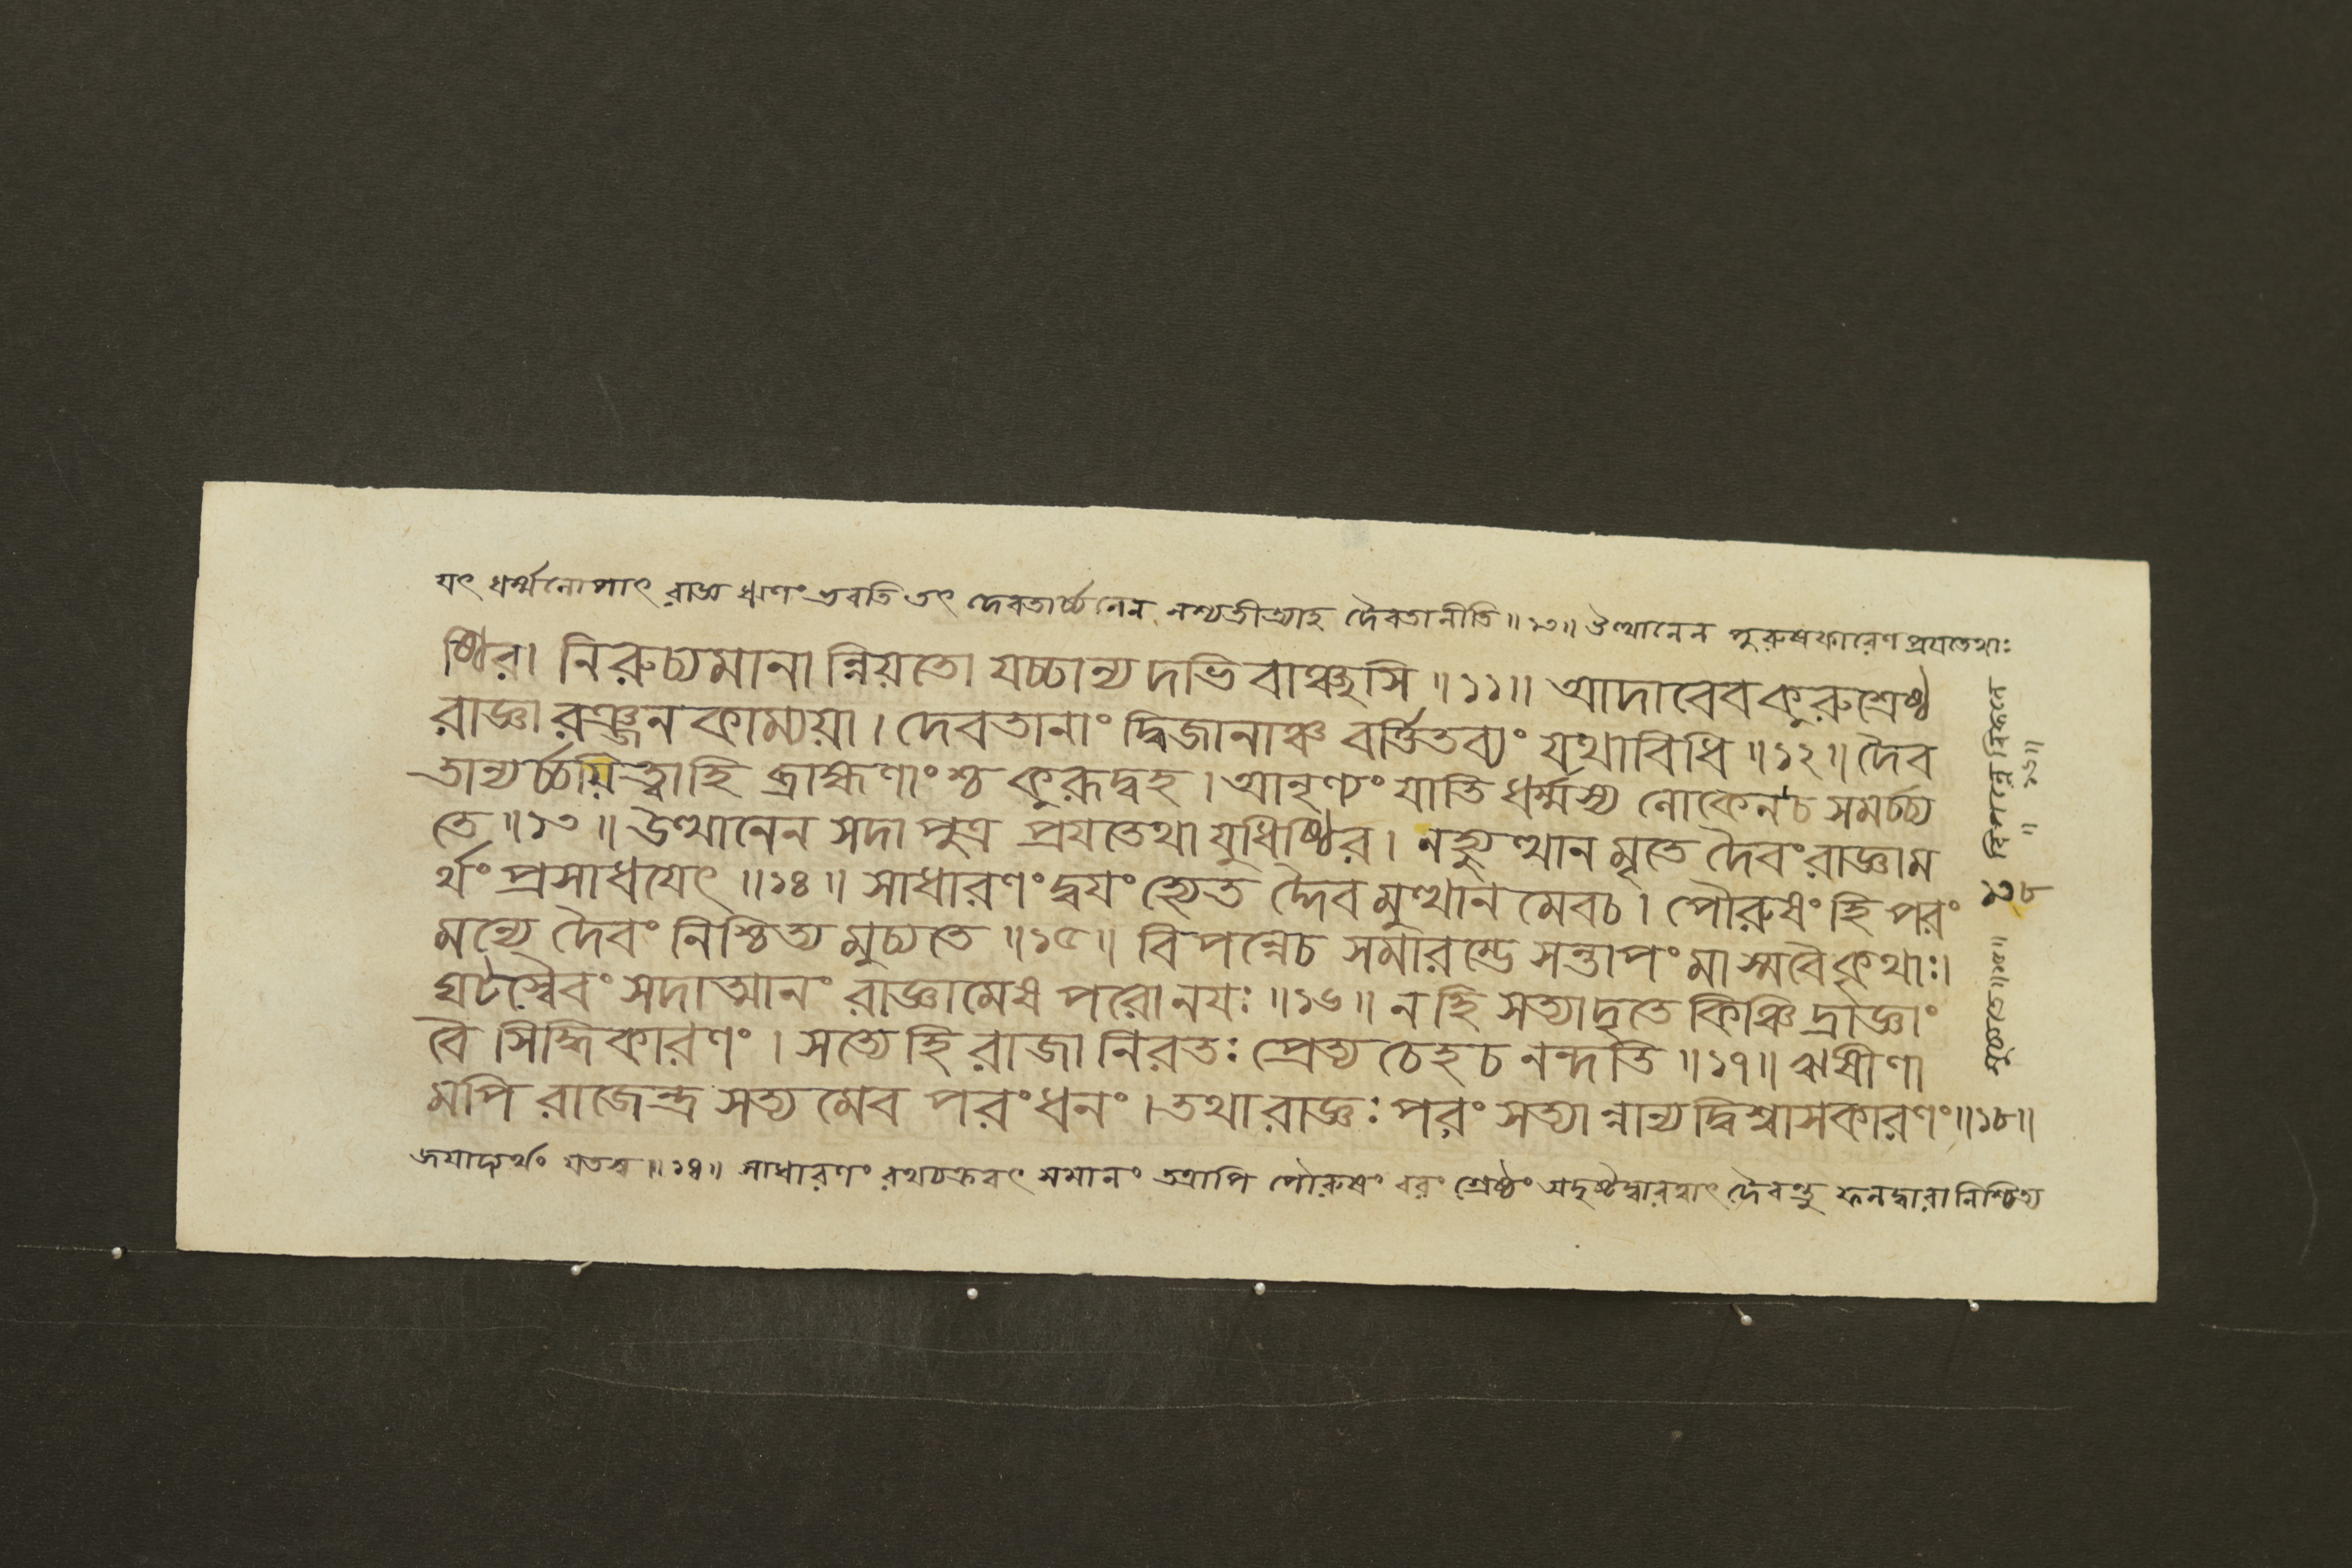 যৎ ধর্ম্মলোপাৎ রাজ্ঞ ঋণং ভবতি তৎ দেবতার্চ্চনেন নশ্যতীত্যাহ দৈবতানীতি ॥১৩॥ উত্থানেন পুরুষকারেণ প্রযতেথাঃ
ষ্ঠির। নিরুচ্যমানান্নিয়তো যচ্চান্যদভিবাঞ্ছসি ॥১১॥ আদাবেব কুরুশ্রেষ্ঠ
রাজ্ঞা রঞ্জনকাম্যয়া। দেবতানাং দ্বিজানাঞ্চ বর্ত্তিতব্যং যথাবিধি ॥১২॥ দৈব
তান্যর্চ্চয়িত্বাহি ব্রাহ্মণাংশ্চ কুরূদ্বহ। আনৃণ্যং যাতি ধর্ম্মস্য লোকেনচ সমর্চ্চ্য
তে ॥১৩॥ উত্থানেন সদা পুত্র প্রযতেথা যুধিষ্ঠির। নহ্যুত্থানমৃতে দৈবং রাজ্ঞাম
র্থং প্রসাধযেৎ ॥১৪॥ সাধারণং দ্বযং হ্যেত দ্দৈবমুত্থানমেবচ। পৌরুষং হি পরং
মন্যে দৈবং নিশ্চিত্য মুচ্যতে ॥১৫॥ বিপন্নেচ সমারম্ভে সন্তাপং মাস্মবৈকৃথাঃ।
ঘটস্বৈবং সদাত্মানং রাজ্ঞামেষ পরোনযঃ ॥১৬॥ নহি সত্যাদৃতে কিঞ্চিদ্রাজ্ঞাং
বৈ সিদ্ধিকারণং। সত্যে হি রাজা নিরতঃ প্রেত্য চেহচ নন্দতি ॥১৭॥ ঋষীণা
মপি রাজেন্দ্র সত্যমেব পরংধনং। তথা রাজ্ঞঃ পরং সত্যান্নান্যদ্বিশ্বাসকারণং ॥১৮॥
জযাদ্যর্থং যতস্ব ॥১৪॥ সাধারণং রথচক্রবৎ সমানং তত্রাপি পৌরুষং বরং শ্রেষ্ঠং অদৃষ্টদ্বারত্বাৎ দৈবন্তু ফলদ্বারা নিশ্চিত্য
মুচ্যতে ॥১৫॥ ১৩৮ বিপন্নে বিফলে
॥১৬॥